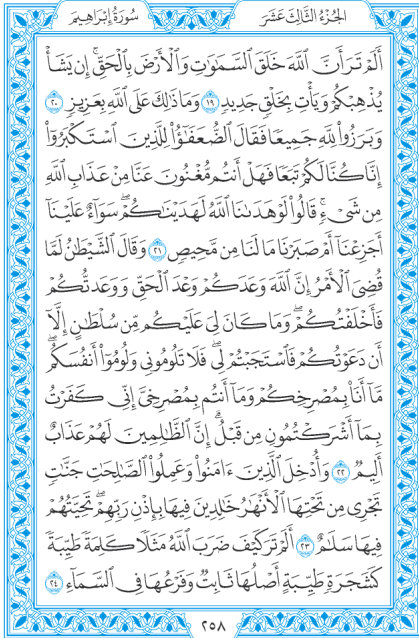 سُورَةُ إِبْرَاهِيمَ
الجُزْءُ الثَّالِثَ عَشَرَ
أَلَمْ تَرَ أَنَّ ٱللَّهَ خَلَقَ ٱلسَّمَٰوَٰتِ وَٱلْأَرْضَ بِٱلْحَقِّۚ إِن يَشَأْ
يُذْهِبْكُمْ وَيَأْتِ بِخَلْقٍ جَدِيدٍ ١٩ وَمَا ذَٰلِكَ عَلَى ٱللَّهِ بِعَزِيزٍ ٢٠
وَبَرَزُواْ لِلَّهِ جَمِيعًا فَقَالَ ٱلضُّعَفَٰٓؤُاْ لِلَّذِينَ ٱسْتَكْبَرُوٓاْ
إِنَّا كُنَّا لَكُمْ تَبَعًا فَهَلْ أَنتُم مُّغْنُونَ عَنَّا مِنْ عَذَابِ ٱللَّهِ
مِن شَىْءٍۚ قَالُواْ لَوْ هَدَىٰنَا ٱللَّهُ لَهَدَيْنَٰكُمْۖ سَوَآءٌ عَلَيْنَآ
أَجَزِعْنَآ أَمْ صَبَرْنَا مَا لَنَا مِن مَّحِيصٍ ٢١ وَقَالَ ٱلشَّيْطَٰنُ لَمَّا
قُضِىَ ٱلْأَمْرُ إِنَّ ٱللَّهَ وَعَدَكُمْ وَعْدَ ٱلْحَقِّ وَوَعَدتُّكُمْ
فَأَخْلَفْتُكُمْۖ وَمَا كَانَ لِىَ عَلَيْكُم مِّن سُلْطَٰنٍ إِلَّآ
أَن دَعَوْتُكُمْ فَٱسْتَجَبْتُمْ لِىۖ فَلَا تَلُومُونِى وَلُومُوٓاْ أَنفُسَكُمۖ
مَّآ أَنَا۠ بِمُصْرِخِكُمْ وَمَآ أَنتُم بِمُصْرِخِىَّۖ إِنِّى كَفَرْتُ
بِمَآ أَشْرَكْتُمُونِ مِن قَبْلُۗ إِنَّ ٱلظَّٰلِمِينَ لَهُمْ عَذَابٌ
أَلِيمٌ ٢٢ وَأُدْخِلَ ٱلَّذِينَ ءَامَنُواْ وَعَمِلُواْ ٱلصَّٰلِحَٰتِ جَنَّٰتٍ
تَجْرِى مِن تَحْتِهَا ٱلْأَنْهَٰرُ خَٰلِدِينَ فِيهَا بِإِذْنِ رَبِّهِمْۖ تَحِيَّتُهُمْ
فِيهَا سَلَٰمٌ ٢٣ أَلَمْ تَرَ كَيْفَ ضَرَبَ ٱللَّهُ مَثَلًا كَلِمَةً طَيِّبَةً
كَشَجَرَةٍ طَيِّبَةٍ أَصْلُهَا ثَابِتٌ وَفَرْعُهَا فِى ٱلسَّمَآءِ ٢٤
٢٥٨